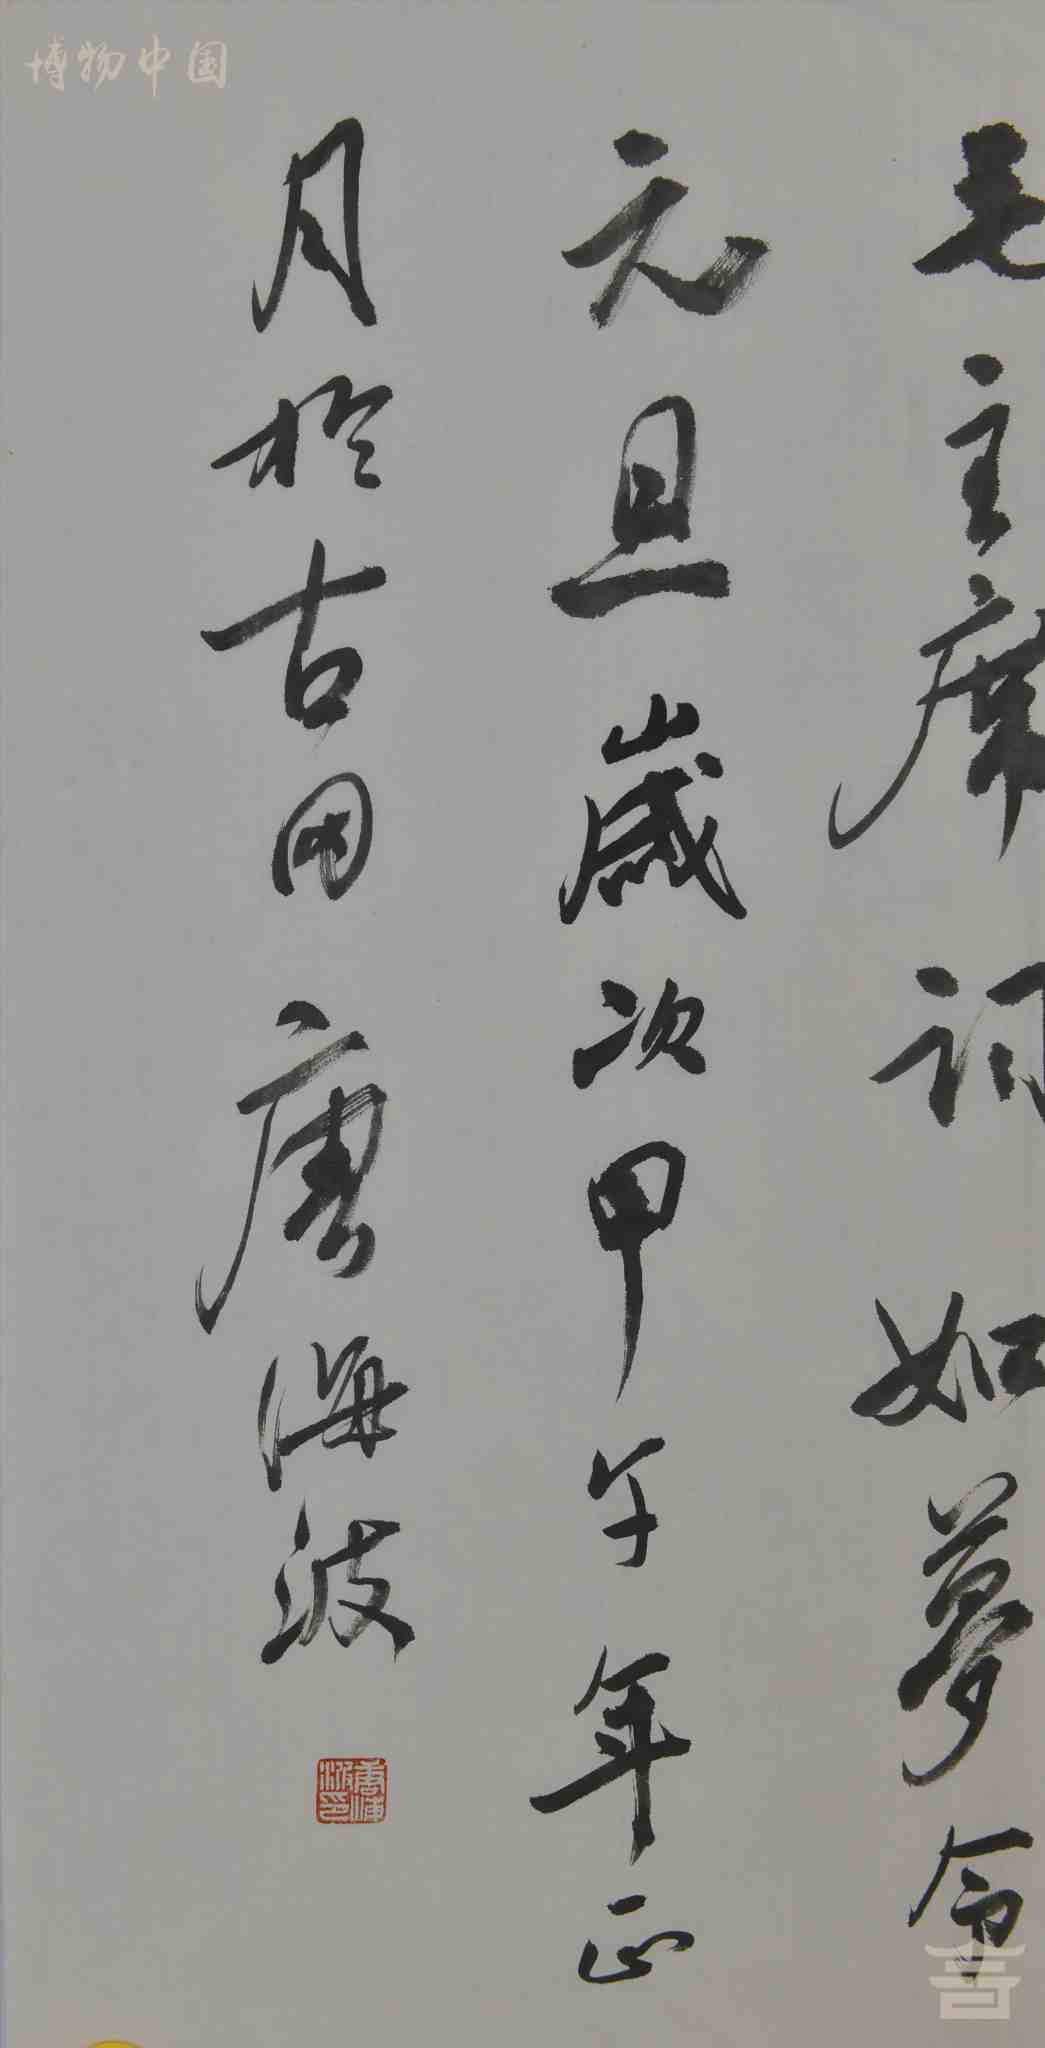 博物中国
毛主席词如梦令
元旦歲次甲午年正
月於古田唐海波
唐海波印